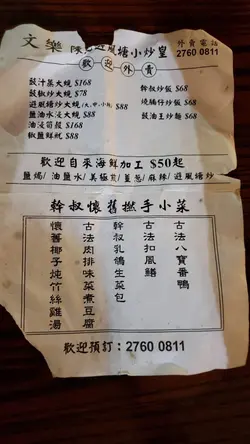 文樂 陳記避風塘小炒皇
外賣電話
2760 0811
歡迎外賣
豉汁菜大蜆 $168
豉椒炒大蜆 $78
避風塘炒大蜆(大,中,小) $88
鹽油水浸大蜆 $88
油浸筍殼 $168
椒鹽鮮魷 $88
幹叔炒飯 $68
燒腩仔炒飯 $68
豉油王炒麵 $68
歡迎自來海鮮加工 $50起
鹽焗/油鹽水/美極煎/薑葱/麻辣/避風塘炒
幹叔懷舊撚手小菜
古法八寶番鴨
古法扣風鱔
幹叔乳鴿生菜包
古法肉排味菜煮豆腐
懷舊椰子炖竹絲雞湯
歡迎預訂：2760 0811